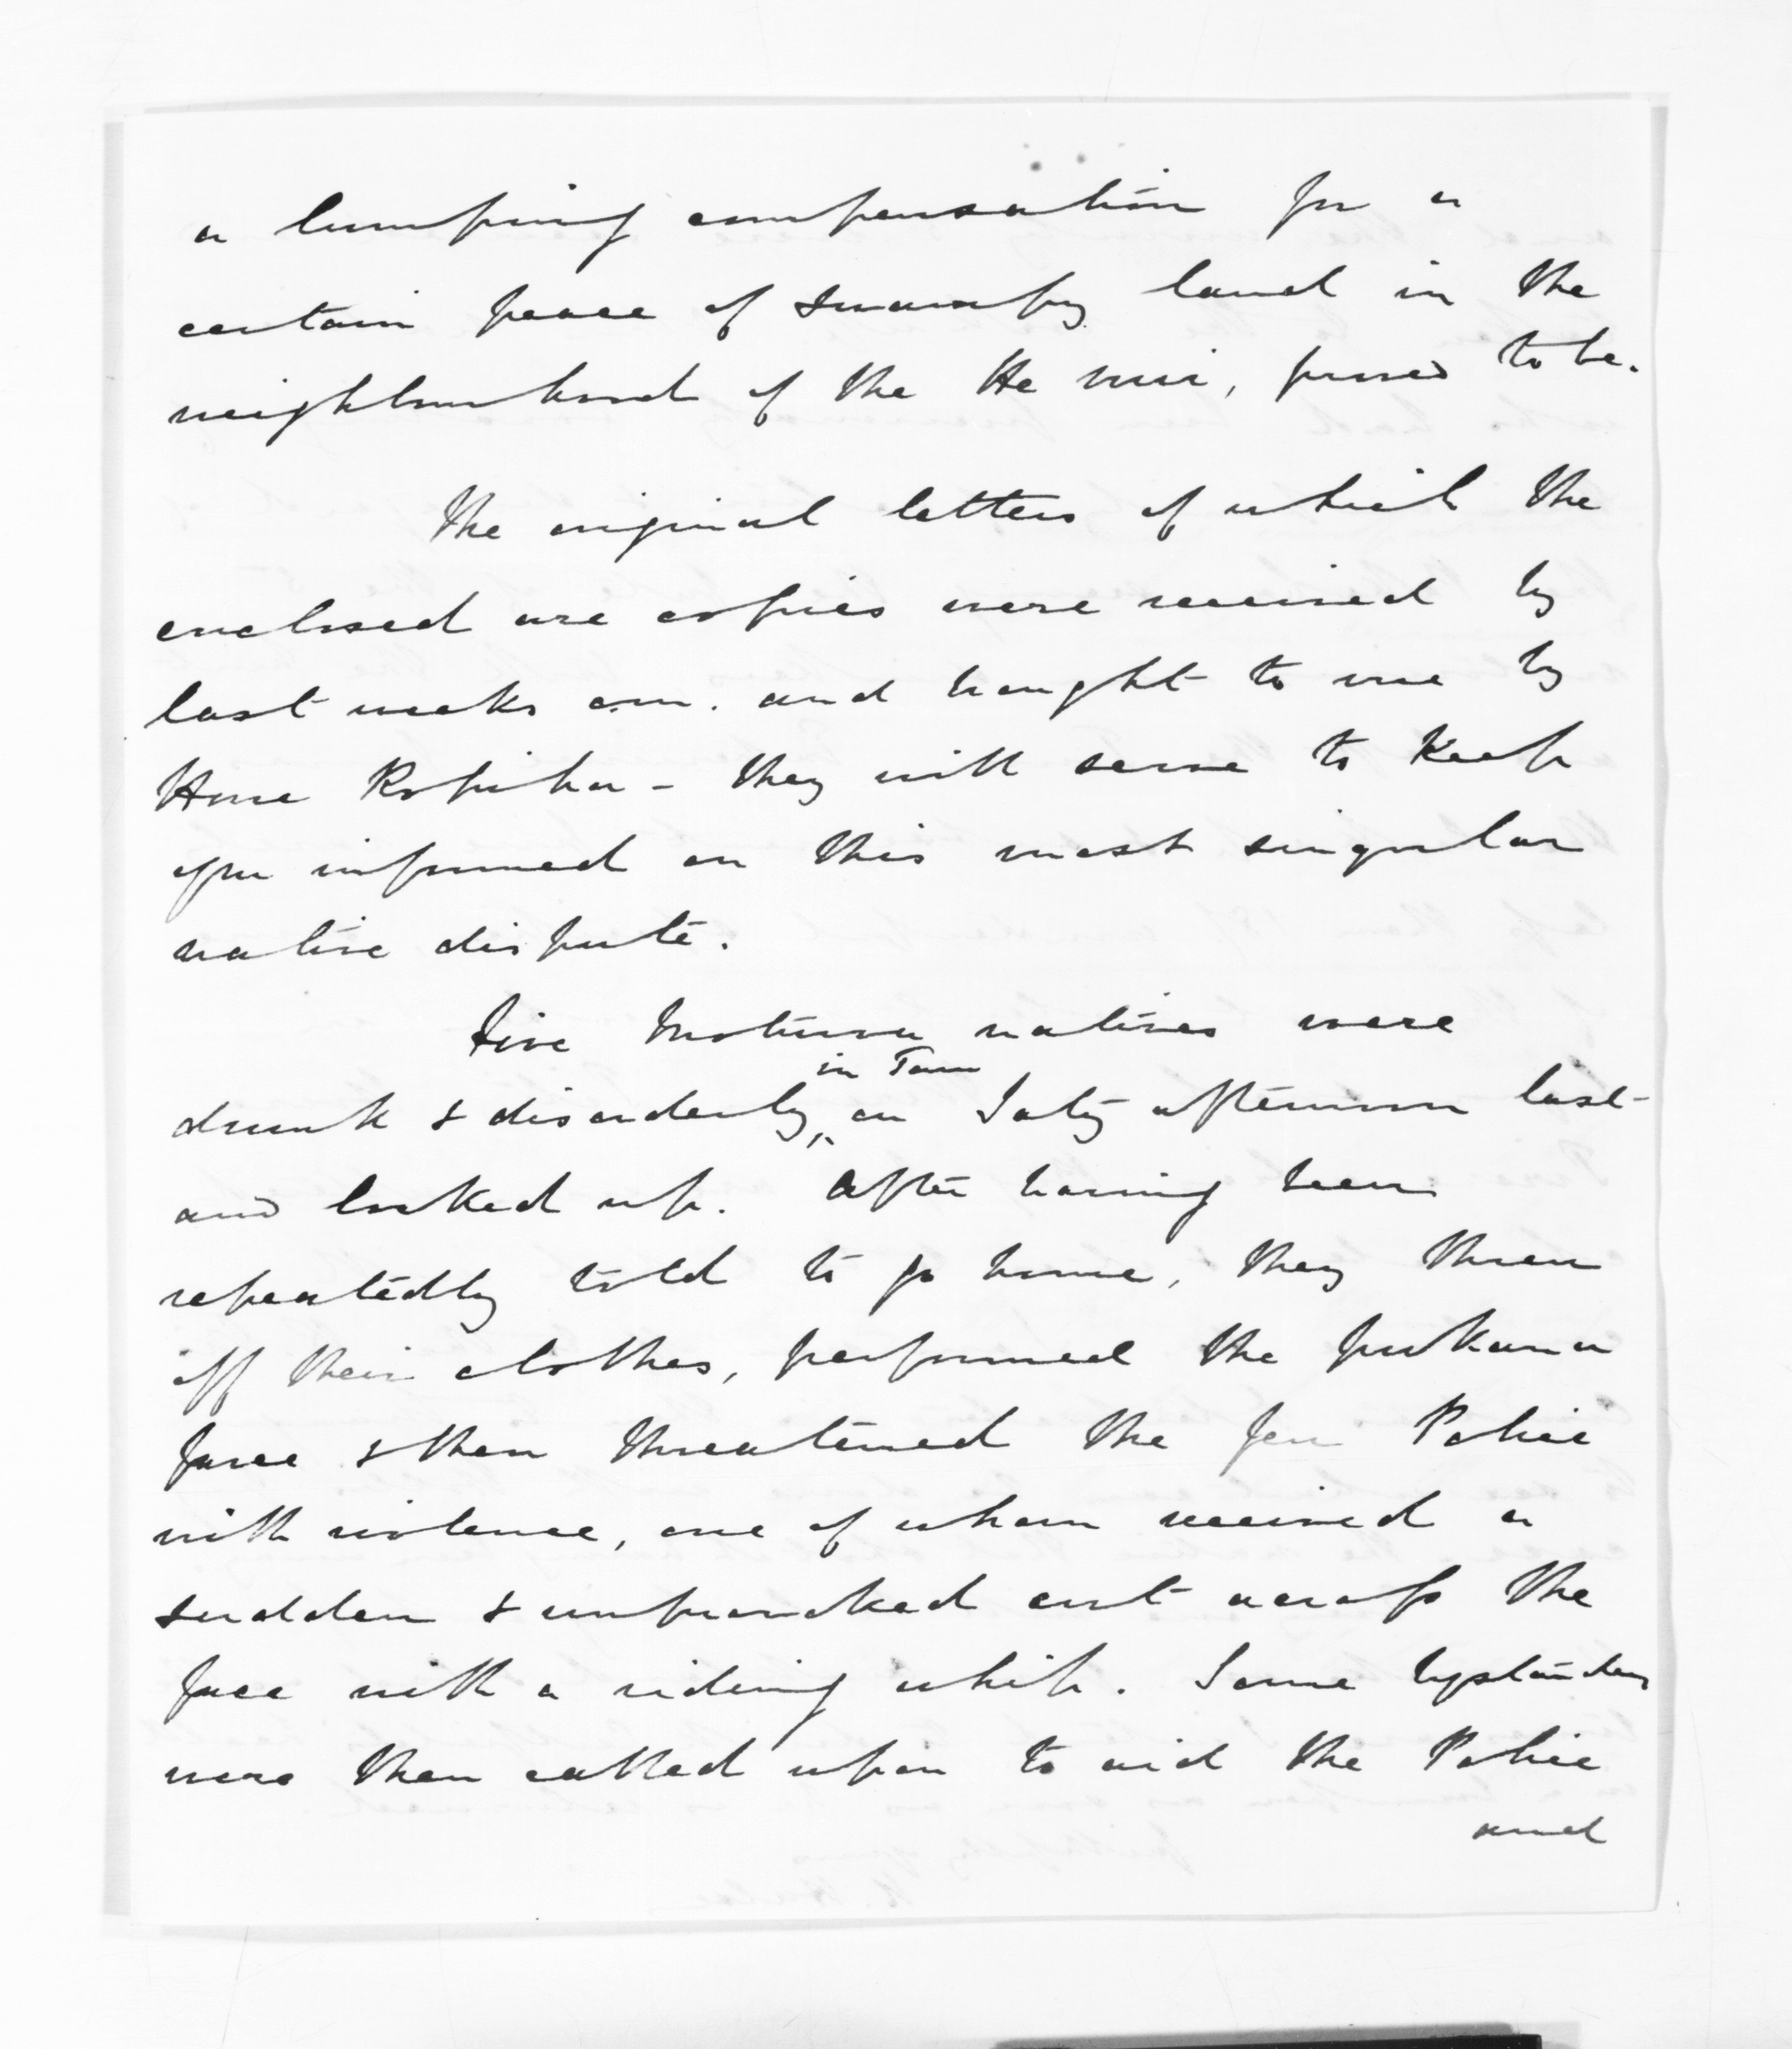 a lumping compensation for a
certain peace of swampy land in the
neighbourhood of the He mui, proved to be.
The original letters of which the
enclosed are copies were received by
last weeks om. and brought to me by
Hone Ropiha - they will serve to keep
you informed on this most singular
native dispute.
Five Moturou natives were
in Town
drunk & disorderly, on Saty afternoon last
and locked up. After having been
repeatedly told to go home, they threw
off their clothes, performed the pukana
farce & then threatened the few Police
with violence, one of whom received a
sudden & unprovoked cut across the
face with a riding whip. Some bystanders
were then called upon to aid the Police
and